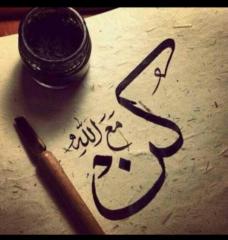 كن مَعَ اللّٰهِ